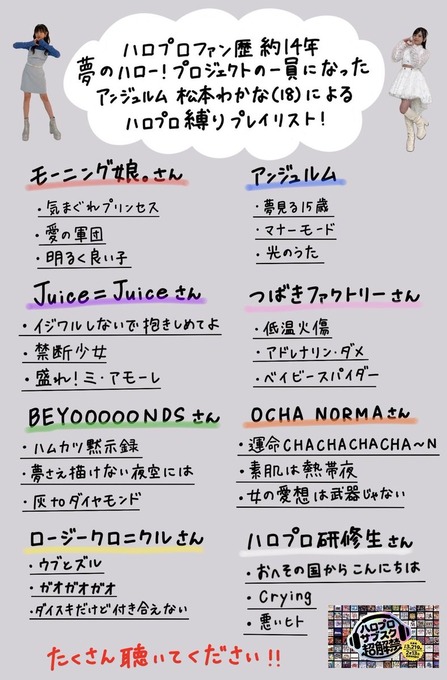 ハロプロファン歴 約14年
夢のハロー！プロジェクトの一員になった
アンジュルム 松本わかな(18)による
ハロプロ縛りプレイリスト！
モーニング娘。さん
・気まぐれプリンセス
・愛の軍団
・明るく良い子
アンジュルム
・夢見る15歳
・マナーモード
・光のうた
Juice=Juiceさん
・イジワルしないで抱きしめてよ
・禁断少女
・盛れ！ミ・アモーレ
つばきファクトリーさん
・低温火傷
・アドレナリン・ダメ
・ベイビースパイダー
BEYOOOOONDSさん
・ハムカツ黙示録
・夢さえ描けない夜空には
・灰toダイヤモンド
OCHA NORMAさん
・運命CHACHACHACHA～N
・素肌は熱帯夜
・女の愛想は武器じゃない
ロージークロニクルさん
・ウブとズル
・ガオガオガオ
・ダイスキだけど付き合えない
ハロプロ研修生さん
・おへその国からこんにちは
・Crying
・悪いヒト
たくさん聴いてください!!
ハロプロ
サブスク
超解禁